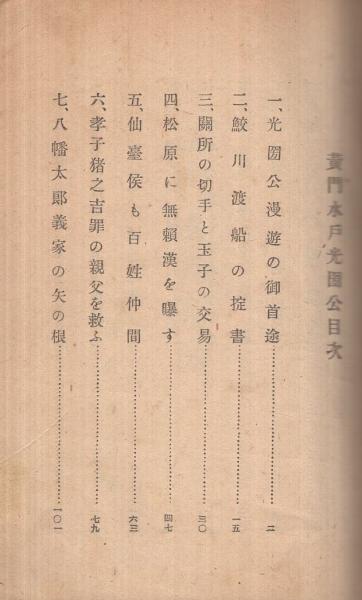 黄門水戸光圀公目次
一、光圀公漫遊の御首途……………二
二、鮫川渡船の掟書……………一五
三、關所の切手と玉子の交易……………三〇
四、松原に無賴漢を曝す……………四七
五、仙臺侯も百姓仲間……………六三
六、孝子猪之吉罪の親父を救ふ……………七九
七、八幡太郞義家の矢の根……………一〇一